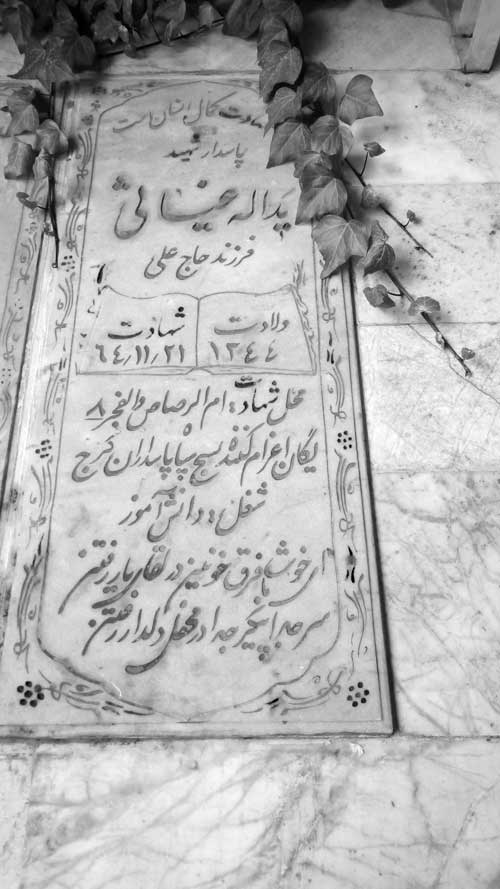 کمال انسان است
پاسدار شهید
یداله غیاثی
فرزند حاج علی
ولادت شهادت
۱۳۴۴ ۶۴٫۱۱٫۲۱
محل شهادت: ام الرصاص والفجر ۸
یگان اعزام کننده بسیج سپاه پاسداران کرج
شغل: دانش آموز
ای خوشا با فرق خونین در لقای یار رفتن
سر جدا پیکر جدا در محفل دلدار رفتن